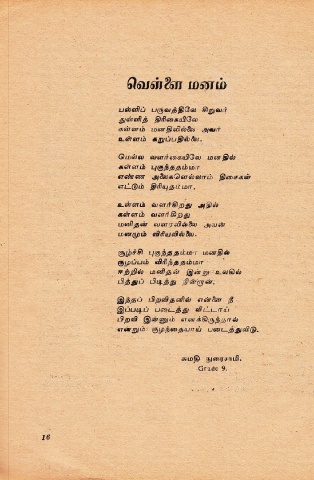 வெள்ளை மனம்
பள்ளிப் பருவத்திலே சிறுவர்
துள்ளித் திரிகையிலே
கள்ளம் மனதிலில்லை அவர்
உள்ளம் கறுப்பதில்லை.
மெல்ல வளர்கையிலே மனதில்
கள்ளம் புகுந்ததம்மா
எண்ண அலைகளெல்லாம் திசைகள்
எட்டும் திரியுதம்மா.
உள்ளம் வளர்கிறது அதில்
கள்ளம் வளர்கிறது
மனிதன் வளரவில்லை அவன்
மனமும் விரியவில்லை.
சூழ்ச்சி புகுந்ததம்மா மனதில்
குழப்பம் விரிந்ததம்மா
ஈற்றில் மனிதன் இன்று உலகில்
பித்துப் பிடித்து நின்றான்.
இந்தப் பிறவிதனில் என்னை நீ
இப்படிப் படைத்து விட்டாய்
பிறவி இன்னும் எனக்கிருந்தால்
என்றும் குழந்தையாய் படைத்துவிடு.
சுமதி துரைசாமி.
Grade 9.
16